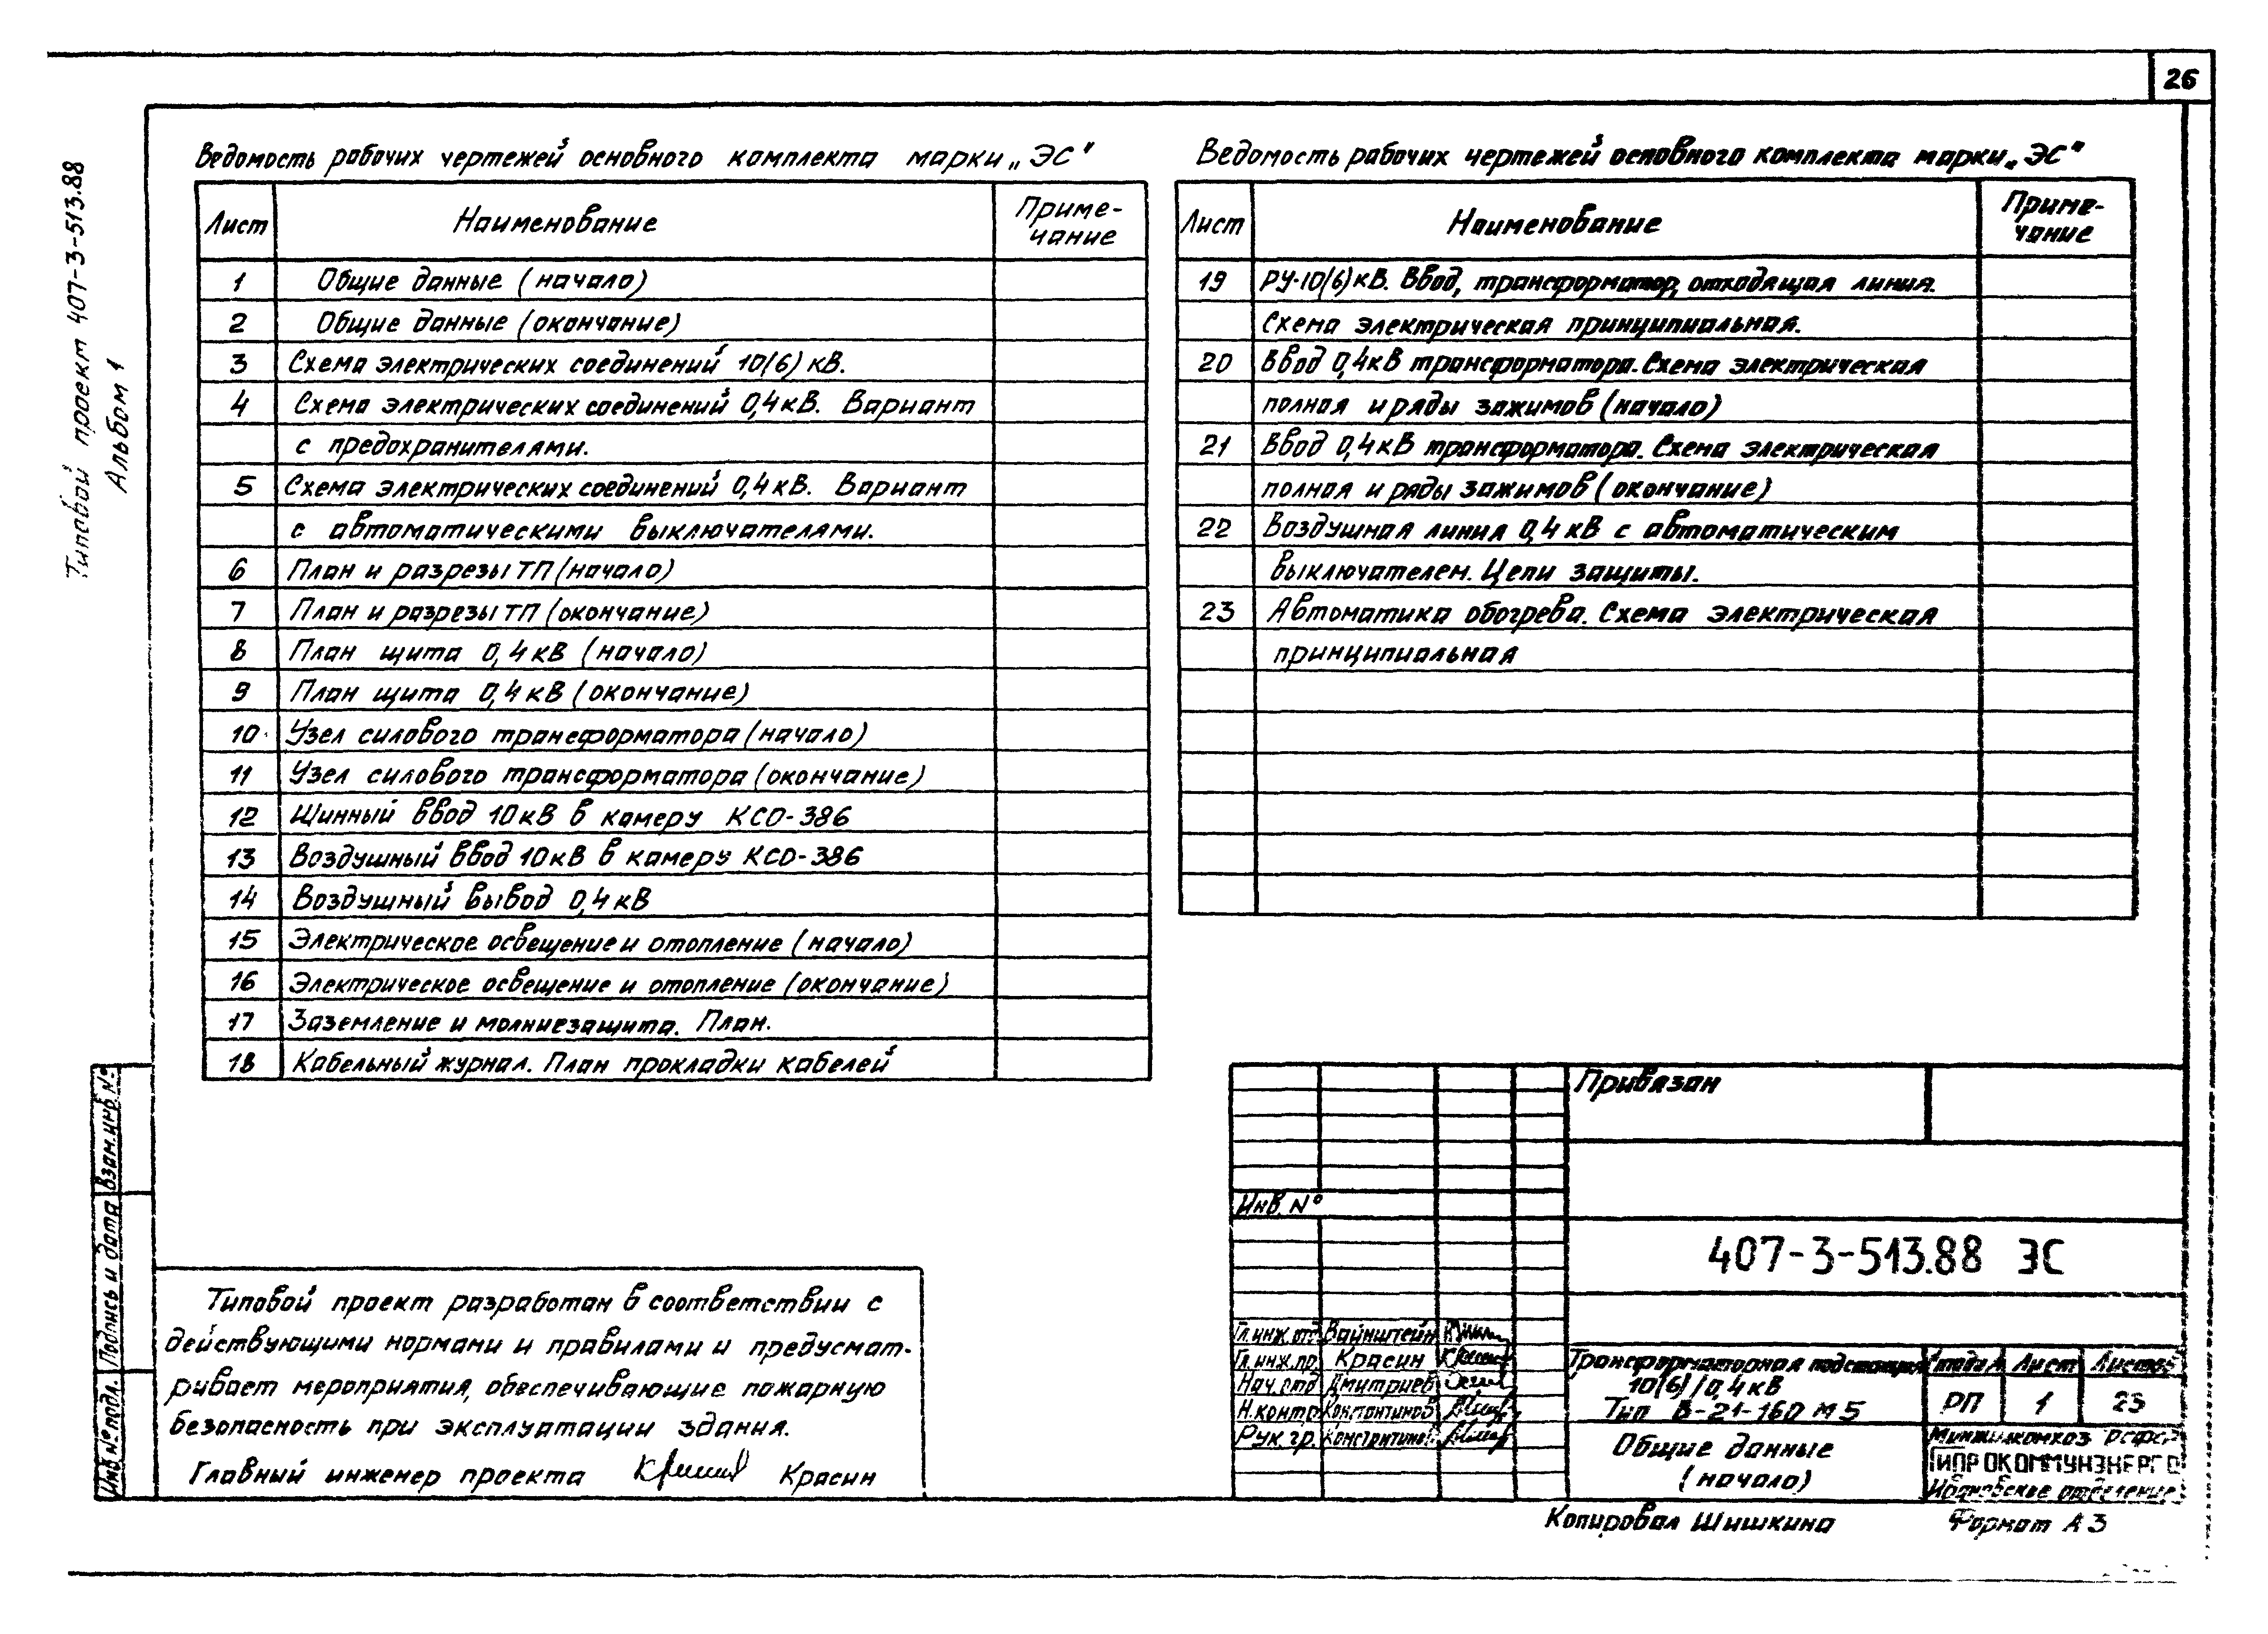 26
Типовой проект 407-3-513.88
Альбом 1
Ведомость рабочих чертежей основного комплекта марки „ЭС"
Лист Наименование Приме-
чание
1 Общие данные (начало)
2 Общие данные (окончание)
3 Схема электрических соединений 10(6) кВ.
4 Схема электрических соединений 0,4 кВ. Вариант
с предохранителями.
5 Схема электрических соединений 0,4 кВ. Вариант
с автоматическими выключателями.
6 План и разрезы ТП (начало)
7 План и разрезы ТП (окончание)
8 План щита 0,4 кВ (начало)
9 План щита 0,4 кВ (окончание)
10 Узел силового трансформатора (начало)
11 Узел силового трансформатора (окончание)
12 Шинный ввод 10 кВ в камеру КСО-386
13 Воздушный ввод 10 кВ в камеру КСО-386
14 Воздушный вывод 0,4 кВ
15 Электрическое освещение и отопление (начало)
16 Электрическое освещение и отопление (окончание)
17 Заземление и молниезащита. План.
18 Кабельный журнал. План прокладки кабелей
Ведомость рабочих чертежей основного комплекта марки „ЭС"
Лист Наименование Приме-
чание
19 РУ-10(6) кВ. Ввод, трансформатор, отходящая линия.
Схема электрическая принципиальная.
20 Ввод 0,4 кВ трансформатора. Схема электрическая
полная и ряды зажимов (начало)
21 Ввод 0,4 кВ трансформатора. Схема электрическая
полная и ряды зажимов (окончание)
22 Воздушная линия 0,4 кВ с автоматическим
выключателем. Цепи защиты.
23 Автоматика обогрева. Схема электрическая
принципиальная
Типовой проект разработан в соответствии с
действующими нормами и правилами и предусмат-
ривает мероприятия, обеспечивающие пожарную
безопасность при эксплуатации здания.
Главный инженер проекта Красин
Инв. № подл. Подпись и дата Взам. инв. №
Привязан
Инв. №
407-3-513.88 ЭС
Гл. инж. отд. Вайнштейн
Гл. инж. пр. Красин
Нач. отд Дмитриев
Н. контр Константинов
Рук. гр. Константинов
Трансформаторная подстанция
10(6)/0,4 кВ
Тип В-21-160 М5
Стадия Лист Листов
РП 1 23
Общие данные
(начало)
Минжилкомхоз РСФСР
ГИПРОКОММУНЭНЕРГО
Ивановское отделение
Копировал Шишкина Формат А3